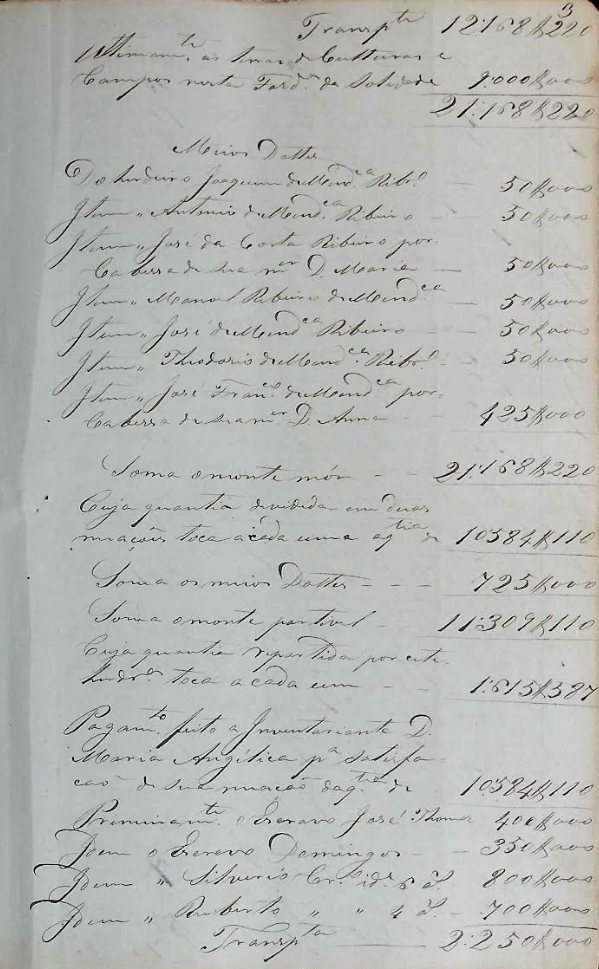 3
Transpte 12:168$220
Ultimamte as terras de Culturas e
Campos nesta Fazda da Soledade 9:000$000
21:168$220
Meios Dattes
Do herdeiro Joaquim de Mendca Ribro — 50$000
Item " Antonio de Mendca Ribeiro — 50$000
Item " José da Costa Ribeiro por
Cabessa de sua mer D. Maria — 50$000
Item " Manoel Ribeiro de Mendca — 50$000
Item " José de Mendca Ribeiro — 50$000
Item " Theodorio de Mendca Ribro — 50$000
Item " José Franco de Mendca por
Cabessa de sua mer D. Anna — 425$000
Soma o monte mór — 21:168$220
Cuja quantia devidida em duas
miaçoẽs toca a cada uma a qtia de 10584$110
Soma os meios Dattes — 725$000
Soma o monte partivel — 11:309$110
Cuja quantia repartida por cete
herdros toca a cada um — 1:615$587
Pagamto feito a Inventariante D.
Maria Angélica pa satisfa
cão de sua miacão da qtia de 10:584$110
Premeiramte o Escravo José Thomé 400$000
Idem o Escravo Domingos — 350$000
Idem " Silverio Cr. ide 6 as. 800$000
Idem " Ruberto " " 4 as. — 700$000
Transpta 2:250$000